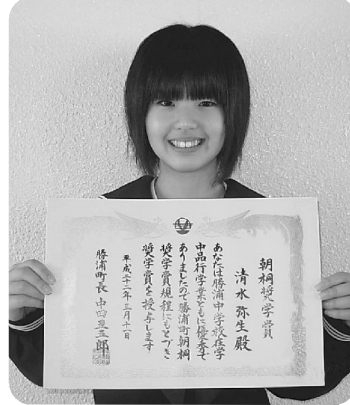 朝桐奨学賞
清水弥生殿
あなたは勝浦中学校在学
中品行学業ともに優秀で
ありましたので勝浦町朝桐
奨学賞規程にもとづき
奨学賞を授与します
平成二十一年三月十一日
勝浦町長 中田丑五郎